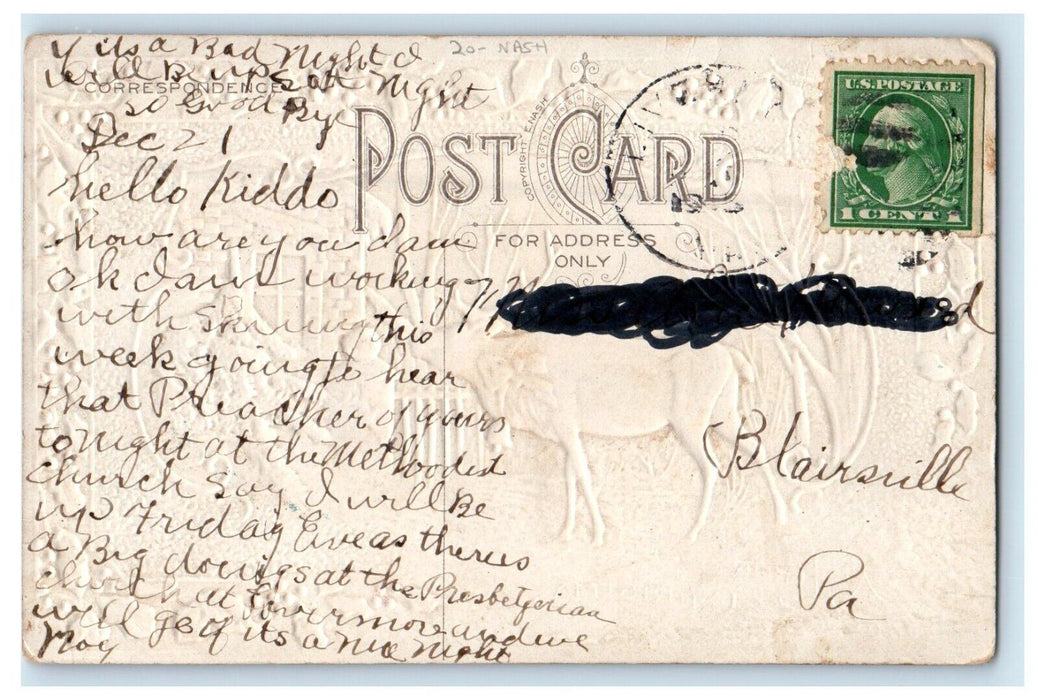 if its a Bad Night I
will B ups at Night
so Good Bye
20- NASH
CORRESPONDENCE
POST CARD
COPYRIGHT E.NASH
FOR ADDRESS
ONLY
U.S. POSTAGE
1 CENT 1
Dec 21
hello Kiddo
how are you I am
ok I am working
with this
week going to hear
that Preacher of yours
to night at the Methodist
church say I will Be
up Friday Eve as there is
a Big doings at the Presbeterian
church at and we
will go if its a nice Night
May
Blairsville
Pa